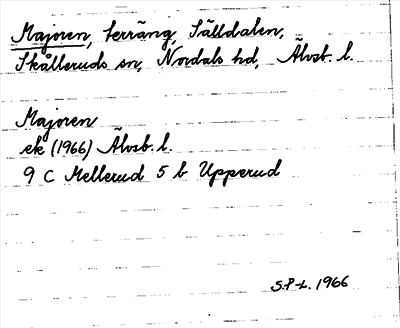 Majoren, terräng, Sälldalen,
Skålleruds sn, Nordals hd, Älvsb. l.
Majoren
ek (1966) Älvsb. l.
9 C Mellerud 5 b Upperud
S.P-L. 1966